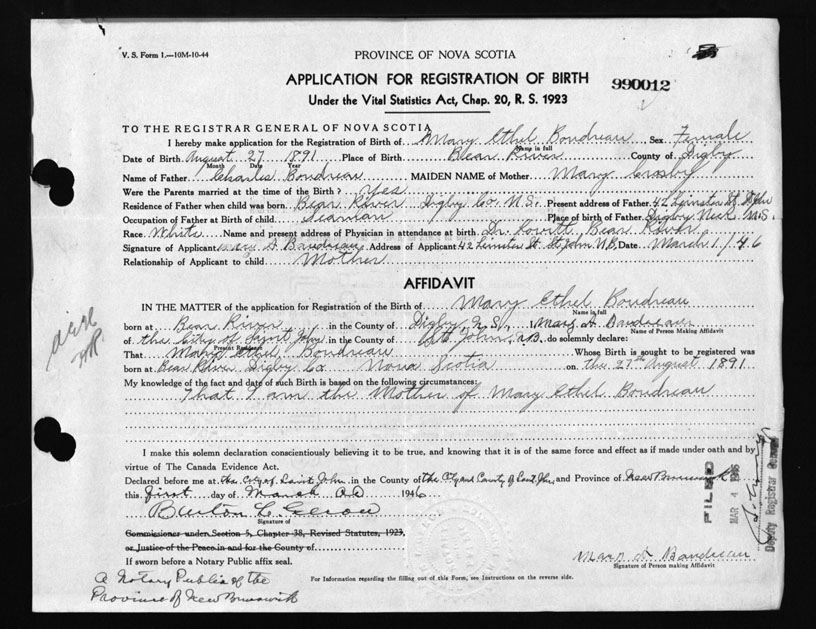 V. S. Form 1.—10M-10-44
PROVINCE OF NOVA SCOTIA
APPLICATION FOR REGISTRATION OF BIRTH
990012
Under the Vital Statistics Act, Chap. 20, R. S. 1923
TO THE REGISTRAR GENERAL OF NOVA SCOTIA
I hereby make application for the Registration of Birth of Mary Ethel Boudreau Sex Female
Name in full
Date of Birth August 27 1891 Place of Birth Bear River County of Digby
Month Date Year
Name of Father Charles Boudreau MAIDEN NAME of Mother Mary Crosby
Were the Parents married at the time of the Birth? Yes
Residence of Father when child was born Bear River Digby Co. N.S. Present address of Father 42 Leinster St.
Occupation of Father at Birth of child Seaman Place of birth of Father Digby Neck N.S.
Race White Name and present address of Physician in attendance at birth Dr. Lovitt, Bear River
Signature of Applicant Mary A Baudreau Address of Applicant 42 Leinster St. St John N.B. Date March 1/46
Relationship of Applicant to child Mother
AFFIDAVIT
IN THE MATTER of the application for Registration of the Birth of Mary Ethel Boudreau
Name in full
born at Bear River in the County of Digby, N.S., I Mary A Baudreau
Name of Person Making Affidavit
of the City of Saint John in the County of St. John, N.B. do solemnly declare:
Present Residence
That Mary Ethel Boudreau Whose Birth is sought to be registered was
born at Bear River Digby Co Nova Scotia on the 27th August 1891
My knowledge of the fact and date of such Birth is based on the following circumstances:
That I am the Mother of Mary Ethel Boudreau
I make this solemn declaration conscientiously believing it to be true, and knowing that it is of the same force and effect as if made under oath and by
virtue of The Canada Evidence Act.
Declared before me at the City of Saint John in the County of the City and County of Saint John, and Province of New Brunswick
this first day of March A.D. 1946
Signature of
Commissioner under Section 5, Chapter 38, Revised Statutes, 1923,
or Justice of the Peace in and for the County of
If sworn before a Notary Public affix seal.
Mary A Baudreau
Signature of Person making Affidavit
A Notary Public of the
Province of New Brunswick
For Information regarding the filling out of this Form, see Instructions on the reverse side.
FILED
MAR 4 1946
Deputy Registrar General